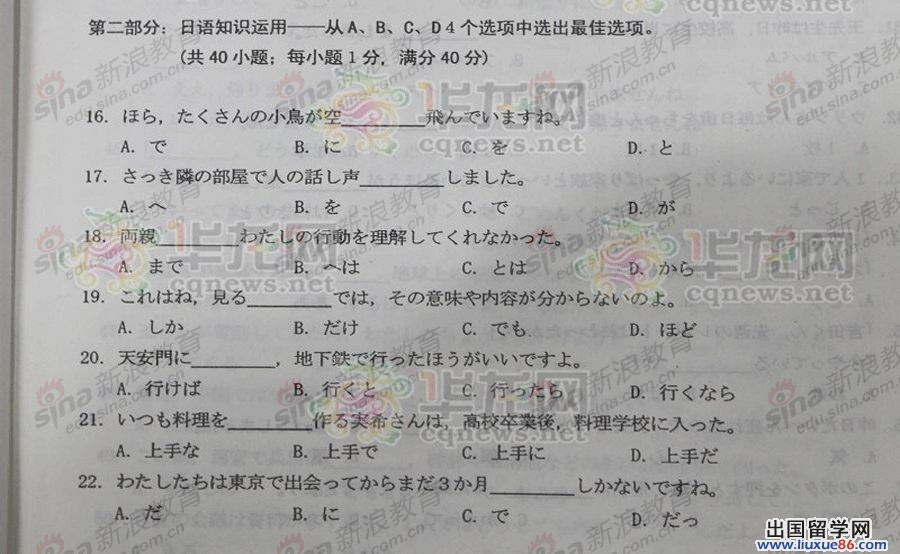 第二部分：日语知识运用——从A、B、C、D4个选项中选出最佳选项。
（共40小题；每小题1分，满分40分）
16. ほら，たくさんの小鳥が空________飛んでいますね。
A. で B. に C. を D. と
17. さっき隣の部屋で人の話し声________しました。
A. へ B. を C. で D. が
18. 両親________わたしの行動を理解してくれなかった。
A. まで B. へは C. とは D. から
19. これはね，見る________では，その意味や内容が分からないのよ。
A. しか B. だけ C. でも D. ほど
20. 天安門に________，地下鉄で行ったほうがいいですよ。
A. 行けば B. 行くと C. 行ったら D. 行くなら
21. いつも料理を________作る実希さんは，高校卒業後，料理学校に入った。
A. 上手な B. 上手で C. 上手に D. 上手だ
22. わたしたちは東京で出会ってからまだ3か月________しかないですね。
A. だ B. に C. で D. だっ
sina新浪教育
edu.sina.com.cn
华龙网
cqnews.net
出国留学网
www.liuxue86.com